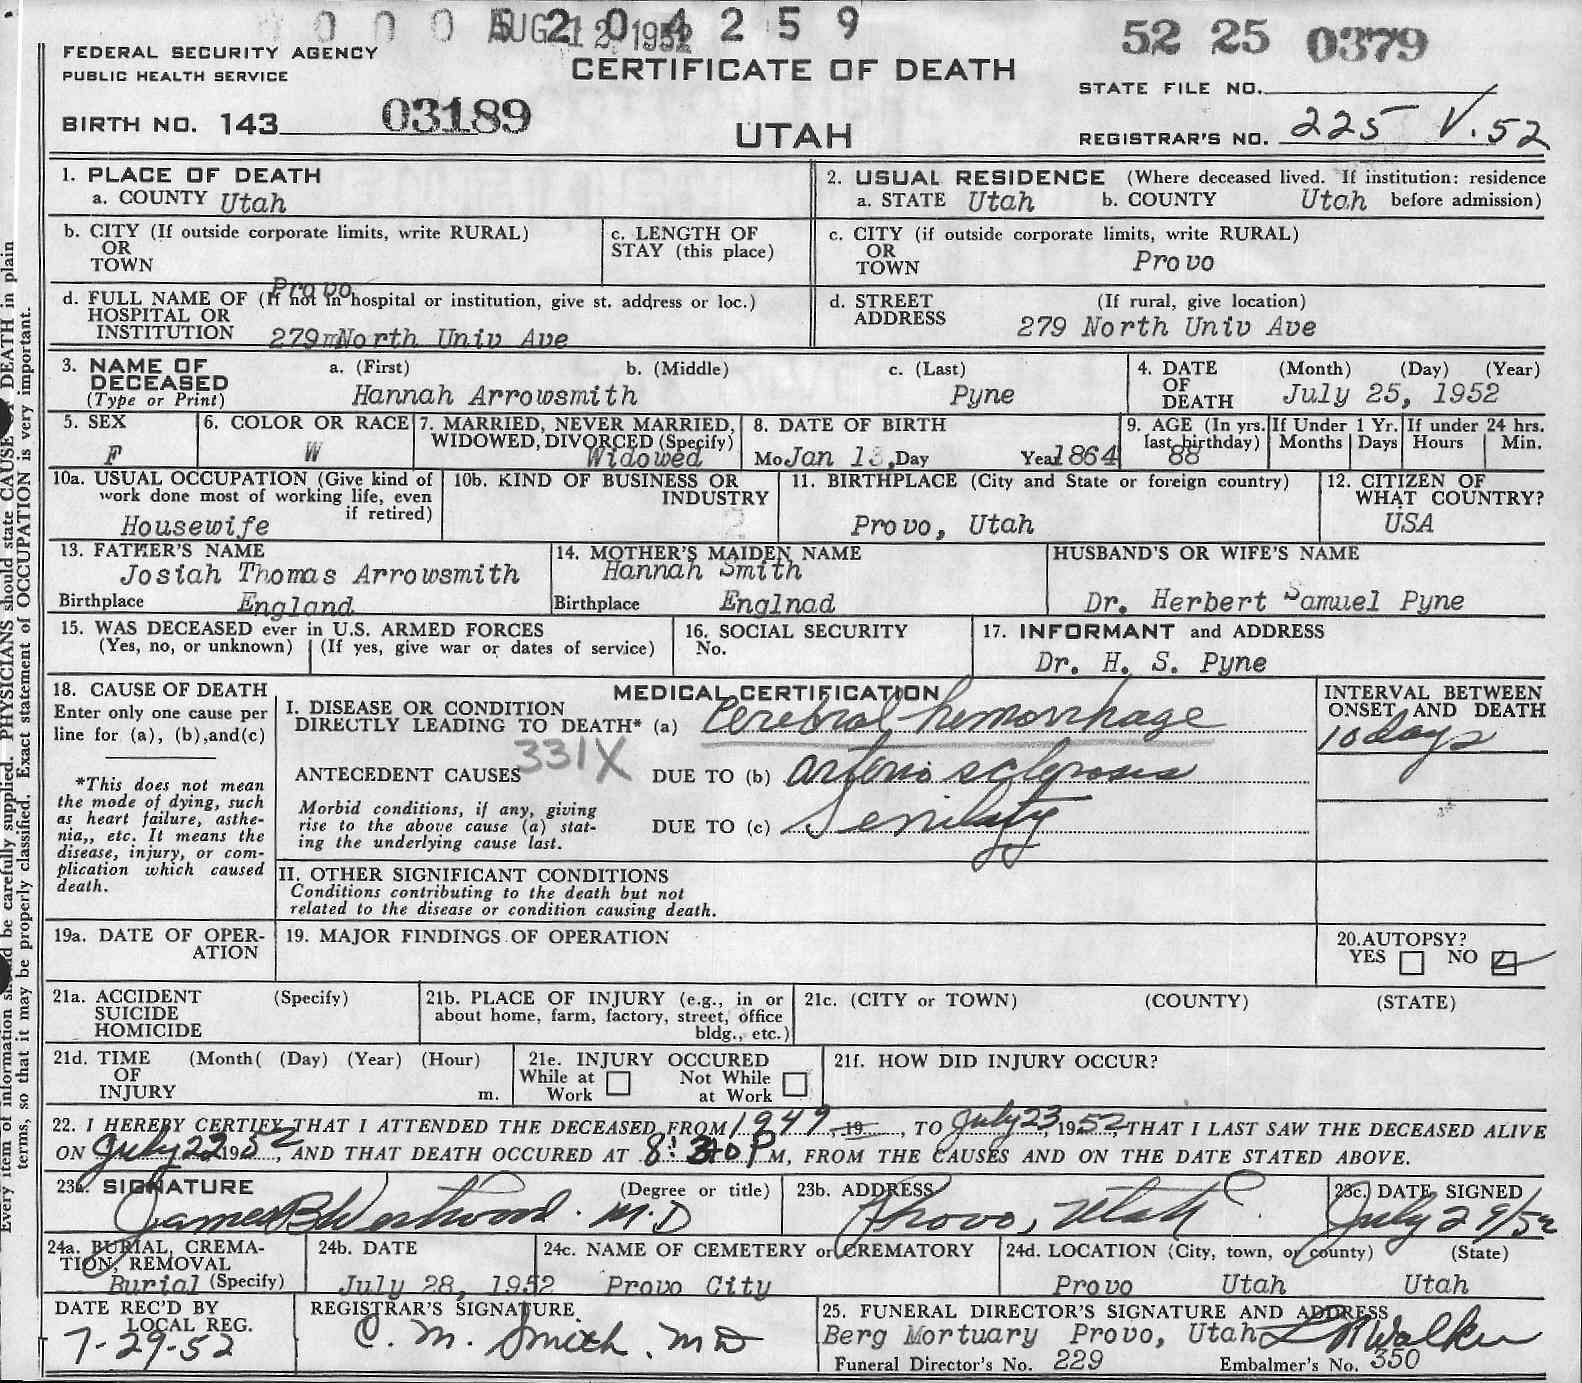 0 0 0 5 2 0 4 2 5 9
AUG 12 1952
52 25 0379
FEDERAL SECURITY AGENCY
PUBLIC HEALTH SERVICE
CERTIFICATE OF DEATH
STATE FILE NO.
BIRTH NO. 143 03189
UTAH
REGISTRAR'S NO. 225 V.52
1. PLACE OF DEATH
a. COUNTY Utah
2. USUAL RESIDENCE (Where deceased lived. If institution: residence
a. STATE Utah b. COUNTY Utah before admission)
b. CITY (If outside corporate limits, write RURAL)
OR
TOWN
Provo
c. LENGTH OF
STAY (this place)
c. CITY (if outside corporate limits, write RURAL)
OR
TOWN
Provo
d. FULL NAME OF (If not in hospital or institution, give st. address or loc.)
HOSPITAL OR
INSTITUTION 279 North Univ Ave
d. STREET (If rural, give location)
ADDRESS 279 North Univ Ave
3. NAME OF DECEASED
(Type or Print)
a. (First) b. (Middle) c. (Last)
Hannah Arrowsmith Pyne
4. DATE OF DEATH
(Month) (Day) (Year)
July 25, 1952
5. SEX
F
6. COLOR OR RACE
W
7. MARRIED, NEVER MARRIED,
WIDOWED, DIVORCED (Specify)
Widowed
8. DATE OF BIRTH
Mo Jan 13, Day Year 1864
9. AGE (In yrs.
last birthday)
88
If Under 1 Yr.
Months Days
If under 24 hrs.
Hours Min.
10a. USUAL OCCUPATION (Give kind of
work done most of working life, even
if retired)
Housewife
10b. KIND OF BUSINESS OR
INDUSTRY
11. BIRTHPLACE (City and State or foreign country)
Provo, Utah
12. CITIZEN OF
WHAT COUNTRY?
USA
13. FATHER'S NAME
Josiah Thomas Arrowsmith
Birthplace England
14. MOTHER'S MAIDEN NAME
Hannah Smith
Birthplace Englnad
HUSBAND'S OR WIFE'S NAME
Dr. Herbert Samuel Pyne
15. WAS DECEASED ever in U.S. ARMED FORCES
(Yes, no, or unknown) (If yes, give war or dates of service)
16. SOCIAL SECURITY
No.
17. INFORMANT and ADDRESS
Dr. H. S. Pyne
18. CAUSE OF DEATH
Enter only one cause per
line for (a), (b),and(c)
*This does not mean
the mode of dying, such
as heart failure, asthe-
nia,, etc. It means the
disease, injury, or com-
plication which caused
death.
MEDICAL CERTIFICATION
I. DISEASE OR CONDITION
DIRECTLY LEADING TO DEATH* (a) Cerebral hemorrhage
331X
ANTECEDENT CAUSES DUE TO (b) arterio sclerosis
Morbid conditions, if any, giving
rise to the above cause (a) stat-
ing the underlying cause last.
DUE TO (c) Senility
INTERVAL BETWEEN
ONSET AND DEATH
10 days
II. OTHER SIGNIFICANT CONDITIONS
Conditions contributing to the death but not
related to the disease or condition causing death.
19a. DATE OF OPER-
ATION
19. MAJOR FINDINGS OF OPERATION
20.AUTOPSY?
YES NO
21a. ACCIDENT (Specify)
SUICIDE
HOMICIDE
21b. PLACE OF INJURY (e.g., in or
about home, farm, factory, street, office
bldg., etc.)
21c. (CITY or TOWN) (COUNTY) (STATE)
21d. TIME (Month( (Day) (Year) (Hour)
OF
INJURY m.
21e. INJURY OCCURED
While at Work Not While at Work
21f. HOW DID INJURY OCCUR?
22. I HEREBY CERTIFY THAT I ATTENDED THE DECEASED FROM 1949, 19 , TO July 23, 1952, THAT I LAST SAW THE DECEASED ALIVE
ON July 19 52, AND THAT DEATH OCCURED AT 8: P M, FROM THE CAUSES AND ON THE DATE STATED ABOVE.
23a. SIGNATURE (Degree or title)
James B Westwood. M.D
23b. ADDRESS
Provo, Utah
23c. DATE SIGNED
July 29/52
24a. BURIAL, CREMA-
TION, REMOVAL
Burial (Specify)
24b. DATE
July 28, 1952
24c. NAME OF CEMETERY or CREMATORY
Provo City
24d. LOCATION (City, town, or county) (State)
Provo Utah Utah
DATE REC'D BY
LOCAL REG.
7-29-52
REGISTRAR'S SIGNATURE
C. M. Smith. MD
25. FUNERAL DIRECTOR'S SIGNATURE AND ADDRESS
Berg Mortuary Provo, Utah Walker
Funeral Director's No. 229 Embalmer's No. 350
Every item of information should be carefully supplied. PHYSICIANS should state CAUSE OF DEATH in plain
terms, so that it may be properly classified. Exact statement of OCCUPATION is very important.